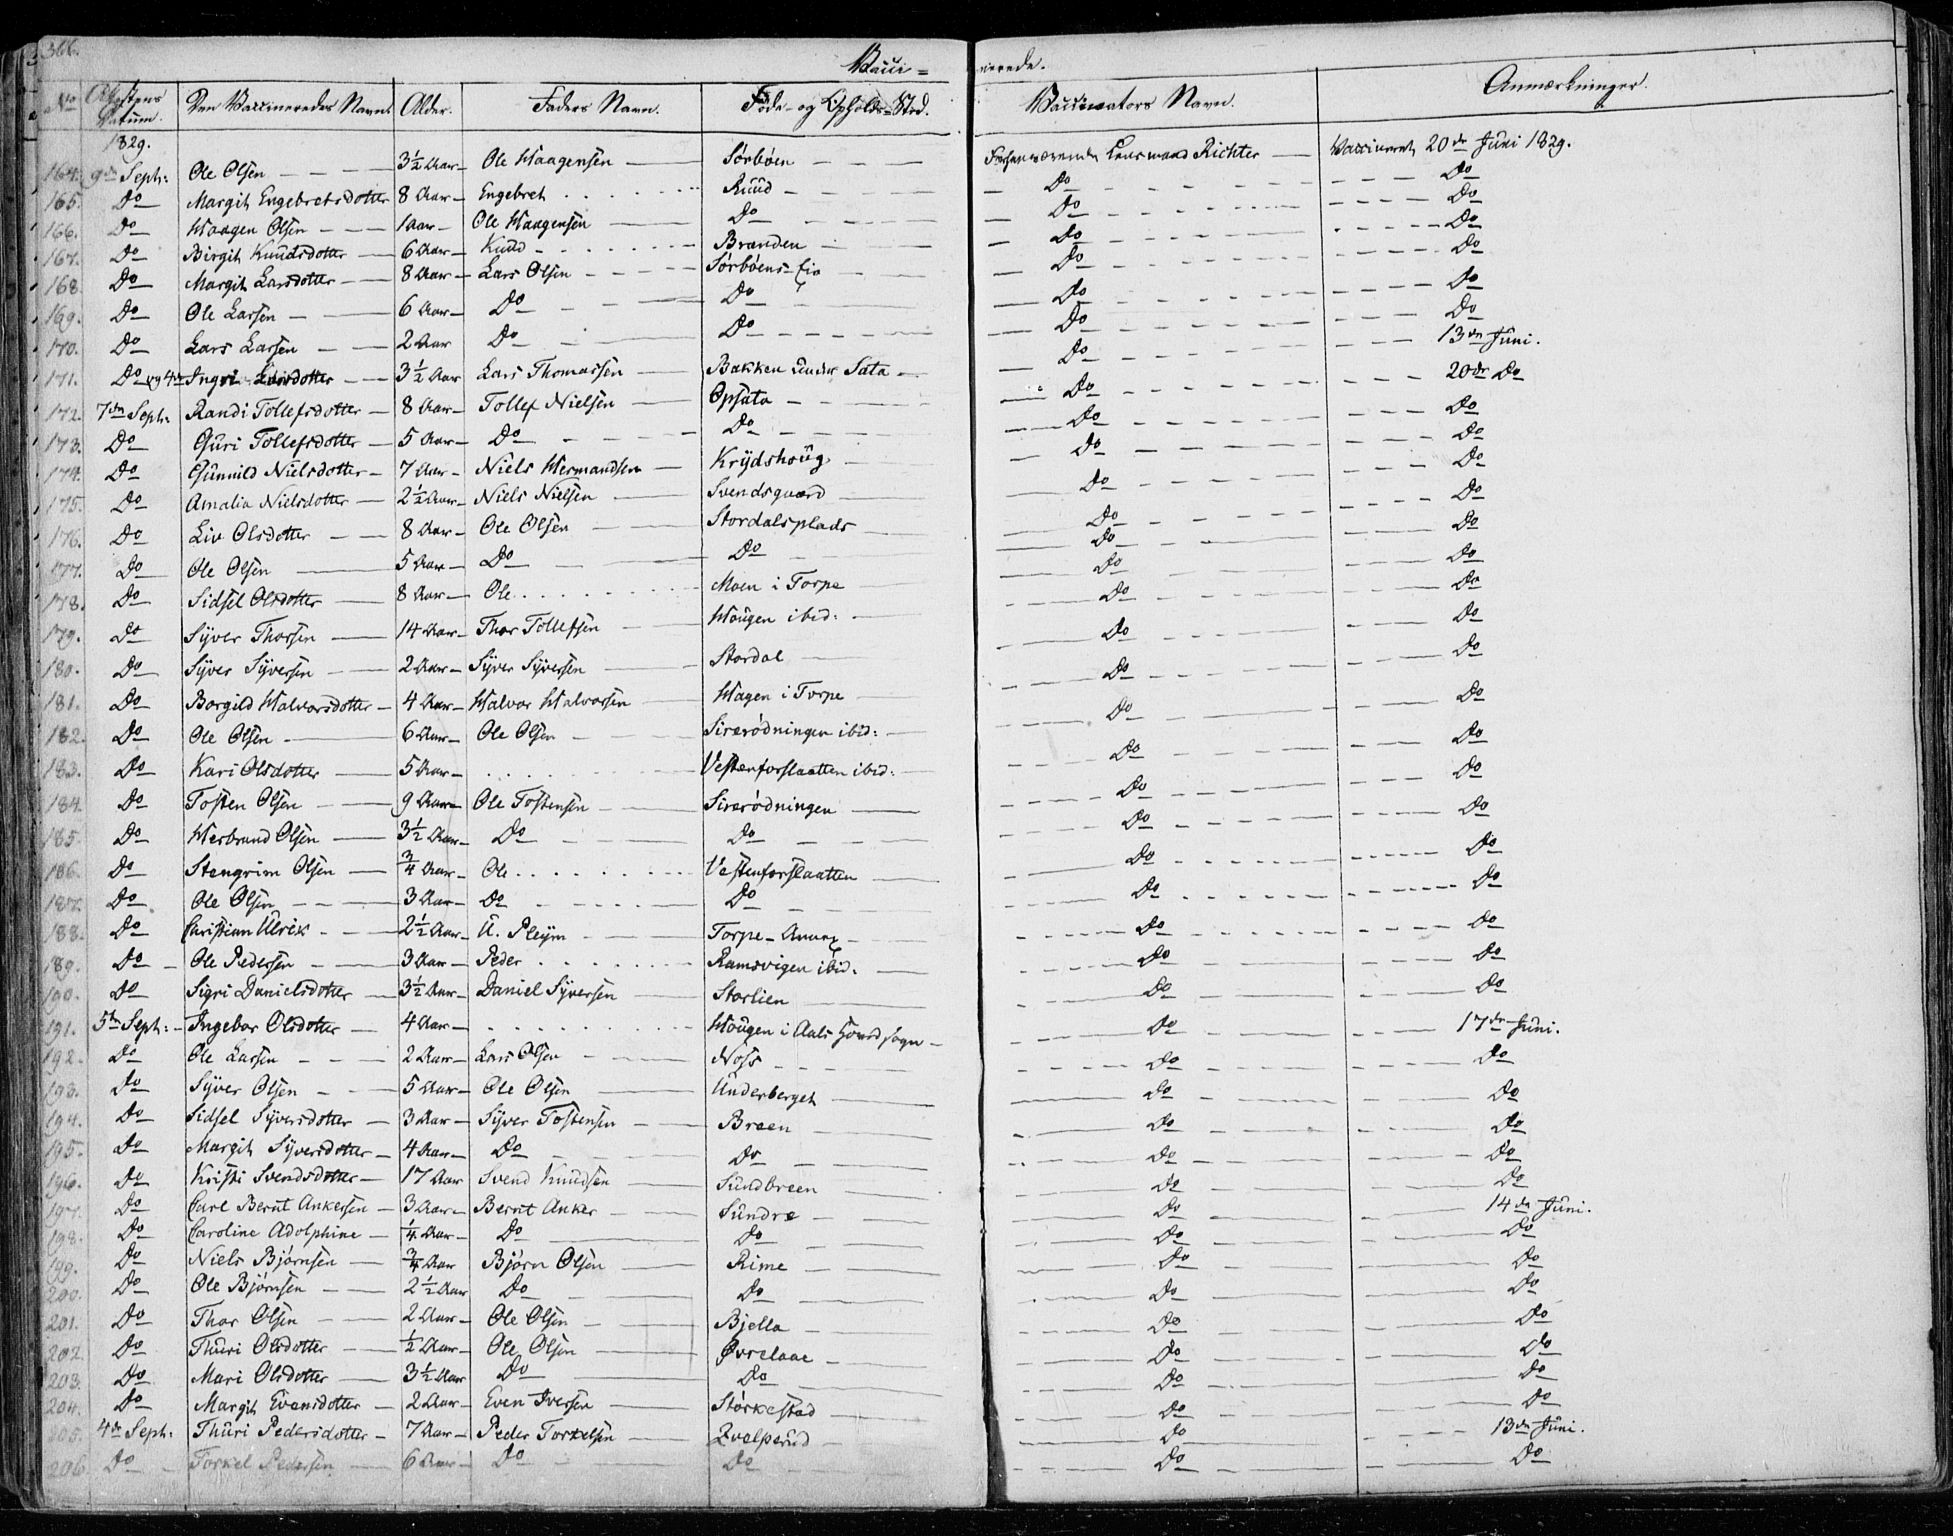 366.
Vacci= nerede.
No Attestens Datum. Den Vaccineredes Navn. Alder. Faders Navn. Føde- og Opholds=Sted. Vaccinators Navn. Anmærkninger.
1829.
164. 9de Septr: Ole Olsen 3½ Aar Ole Haagensen Sørbøen Forhenværende Lensmand Richter Vaccineret 20de Juni 1829.
165. Do Margit Engebretsdotter 8 Aar Engebret . . . Ruud Do Do
166. Do Haagen Olsen 1 Aar Ole Haagensen Do Do Do
167. Do Birgit Knudsdotter 6 Aar Knud Brænden Do Do
168. Do Margit Larsdotter 8 Aar Lars Olsen Sørbøens-Eie Do Do
169. Do Ole Larsen 6 Aar Do Do Do Do
170. Do Lars Larsen 2 Aar Do Do Do Do
171. Do og 4de Ingri Larsdotter 3½ Aar Lars Thomassen Bakken under Sata Do 13de Juni.
172. 7de Septr: Randi Tollefsdotter 8 Aar Tollef Nielsen Opsata Do 20de Do
173. Do Guri Tollefsdotter 5 Aar Do Do Do Do
174. Do Gunnild Nielsdotter 7 Aar Niels Hermandsen Krydshoug Do Do
175. Do Amalia Nielsdotter 2½ Aar Niels Nielsen Svendsgaard Do Do
176. Do Liv Olsdotter 8 Aar Ole Olsen Stordalsplads Do Do
177. Do Ole Olsen 5 Aar Do Do Do Do
178. Do Sidsel Olsdotter 8 Aar Ole . . . Moen i Torpe Do Do
179. Do Syver Thorsen 14 Aar Thor Tollefsen Hougen ibid: Do Do
180. Do Syver Syversen 2 Aar Syver Syversen Stordal Do Do
181. Do Borgild Halvorsdotter 4 Aar Halvor Halvorsen Hagen i Torpe Do Do
182. Do Ole Olsen 6 Aar Ole Olsen Sirerødningen ibid: Do Do
183. Do Kari Olsdotter 5 Aar . . . Vestenforslaatten ibid: Do Do
184. Do Tosten Olsen 9 Aar Ole Tostensen Sirerødningen Do Do
185. Do Herbrand Olsen 3½ Aar Do Do Do Do
186. Do Stengrim Olsen ¾ Aar Ole . . . Vestenforslaatten Do Do
187. Do Ole Olsen 3 Aar Do Do Do Do
188. Do Christian Ulrik 2½ Aar U. Pleym Torpe-Annex Do Do
189. Do Ole Pedersen 3 Aar Peder . . . Ramsvigen ibid: Do Do
190. Do Sigri Danielsdotter 3½ Aar Daniel Syversen Storlien Do Do
191. 5te Septr: Ingebor Olsdotter 4 Aar . . . Hougen i Aals Hovedsogn Do 17de Juni.
192. Do Ole Larsen 2 Aar Lars Olsen Noss Do Do
193. Do Syver Olsen 5 Aar Ole Olsen Underberget Do Do
194. Do Sidsel Syversdotter 3 Aar Syver Tostensen Breen Do Do
195. Do Margit Syversdotter 4 Aar Do Do Do Do
196. Do Kristi Svendsdotter 17 Aar Svend Knudsen Sundbreen Do Do
197. Do Carl Bernt Ankersen 3 Aar Bernt Anker Sundre Do 14de Juni.
198. Do Caroline Adolphine ¼ Aar Do Do Do Do
199. Do Niels Bjørnsen ¾ Aar Bjørn Olsen Rime Do Do
200. Do Ole Bjørnsen 2½ Aar Do Do Do Do
201. Do Thor Olsen 2 Aar Ole Olsen Bjella Do Do
202. Do Thuri Olsdotter ½ Aar Ole Olsen Øvrelaae Do Do
203. Do Mari Olsdotter 3½ Aar Do Do Do Do
204. Do Margit Evensdotter 2 Aar Even Iversen Størkestad Do Do
205. 4de Septr: Thuri Pedersdotter 7 Aar Peder Torkelsen Qvelprud Do 13de Juni.
206. Do Torkel Pedersen 6 Aar Do Do Do Do